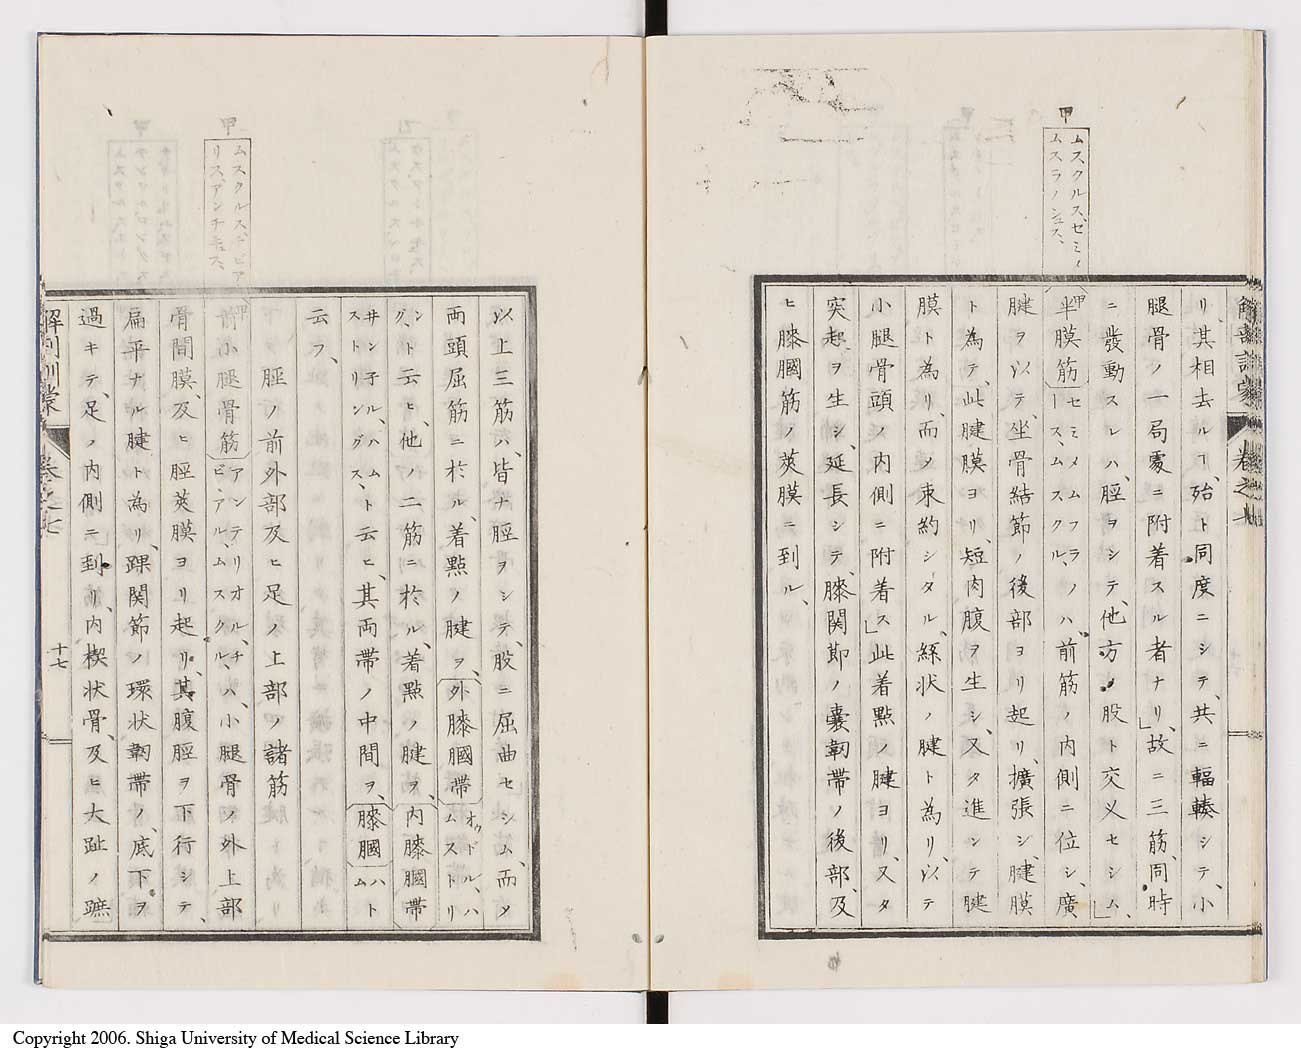 甲
ムスクルス、セミメ
ムスラノシュス、
解剖訓蒙 卷之七
リ、其相去ルヿ、殆ト同度ニシテ、共ニ輻輳シテ、小
腿骨ノ一局處ニ附着スル者ナリ」故ニ三筋、同時
ニ發動スレハ、脛ヲシテ、他方ノ股ト交叉セシム、」
甲半膜筋 セミメムフラノース、ムスクル、ハ前筋ノ内側ニ位シ、廣
腱ヲ以テ、坐骨結節ノ後部ヨリ起リ、擴張シ、腱膜
ト為テ、此腱膜ヨリ、短肉腹ヲ生シ、又タ進ンテ腱
膜ト為リ、而ノ朿約シタル、絲状ノ腱ト為リ、以テ
小腿骨頭ノ内側ニ附着ス」此着點ノ腱ヨリ、又タ
突起ヲ生シ、延長シテ、膝関節ノ嚢韌帯ノ後部、及
ヒ膝膕筋ノ莢膜ニ到ル、
以上三筋ハ、皆ナ脛ヲシテ、股ニ屈曲セシム、而タ
両頭屈筋ニ於ル、着點ノ腱ヲ、外膝膕帯 オウトドル、ハムストリ
ング、ト云ヒ、他ノ二筋ニ於ル、着點ノ腱ヲ、内膝膕帯
井ン子ル、ハムストリングス、ト云ヒ、其両帯ノ中間ヲ、膝膕 ハムト
云フ、
脛ノ前外部及ヒ足ノ上部ノ諸筋
甲
ムスクルス、チビア
リス、アンチキュス、
甲前小腿骨筋 アンテリオル、チビアル、ムスクル、ハ、小腿骨ノ外上部
骨間膜、及ヒ脛莢膜ヨリ起リ、其腹脛ヲ下行シテ、
扁平ナル腱ト為リ、踝関節ノ環状韌帯ノ、底下ヲ
過キテ、足ノ内側ニ到リ、内楔状骨、及ヒ大趾ノ蹠
解剖訓蒙 卷之七 十七
Copyright 2006. Shiga University of Medical Science Library